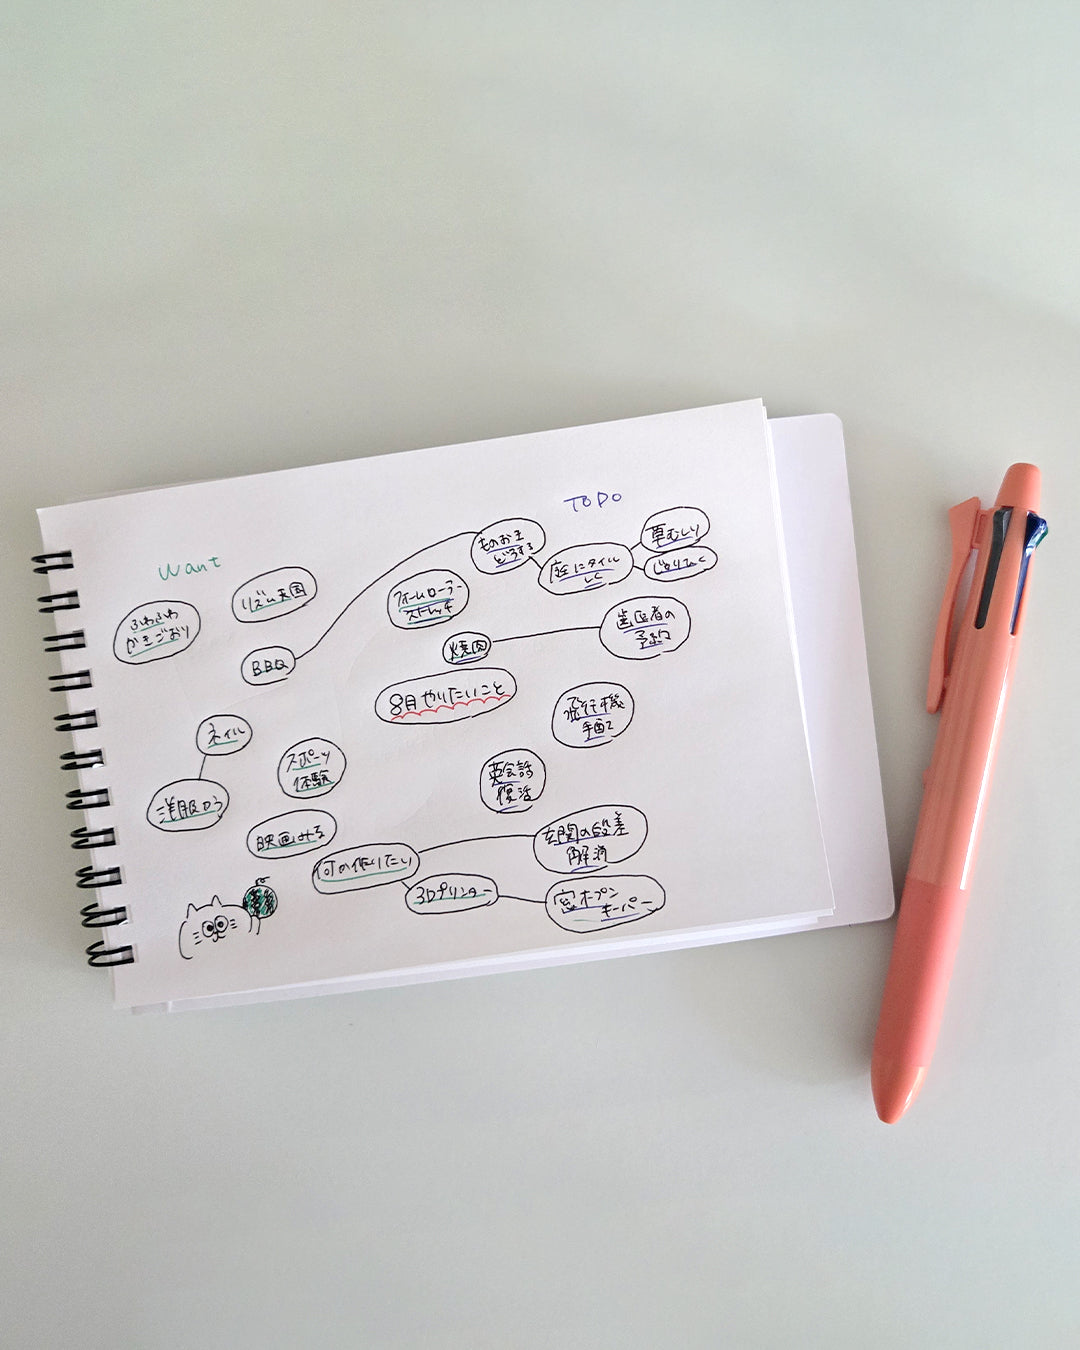 Want
TODO
ふわふわ
かきごおり
リズム天国
BBQ
ネイル
洋服かう
スポーツ
体験
映画みる
何か作りたい
3Dプリンター
フォームローラー
ストレッチ
焼肉
8月やりたいこと
どうする
庭にタイル
しく
草むしり
じゃりしく
歯医者の
予約
飛行機
手配
英会話
復活
玄関の段差
解消
窓オープン
キーパー